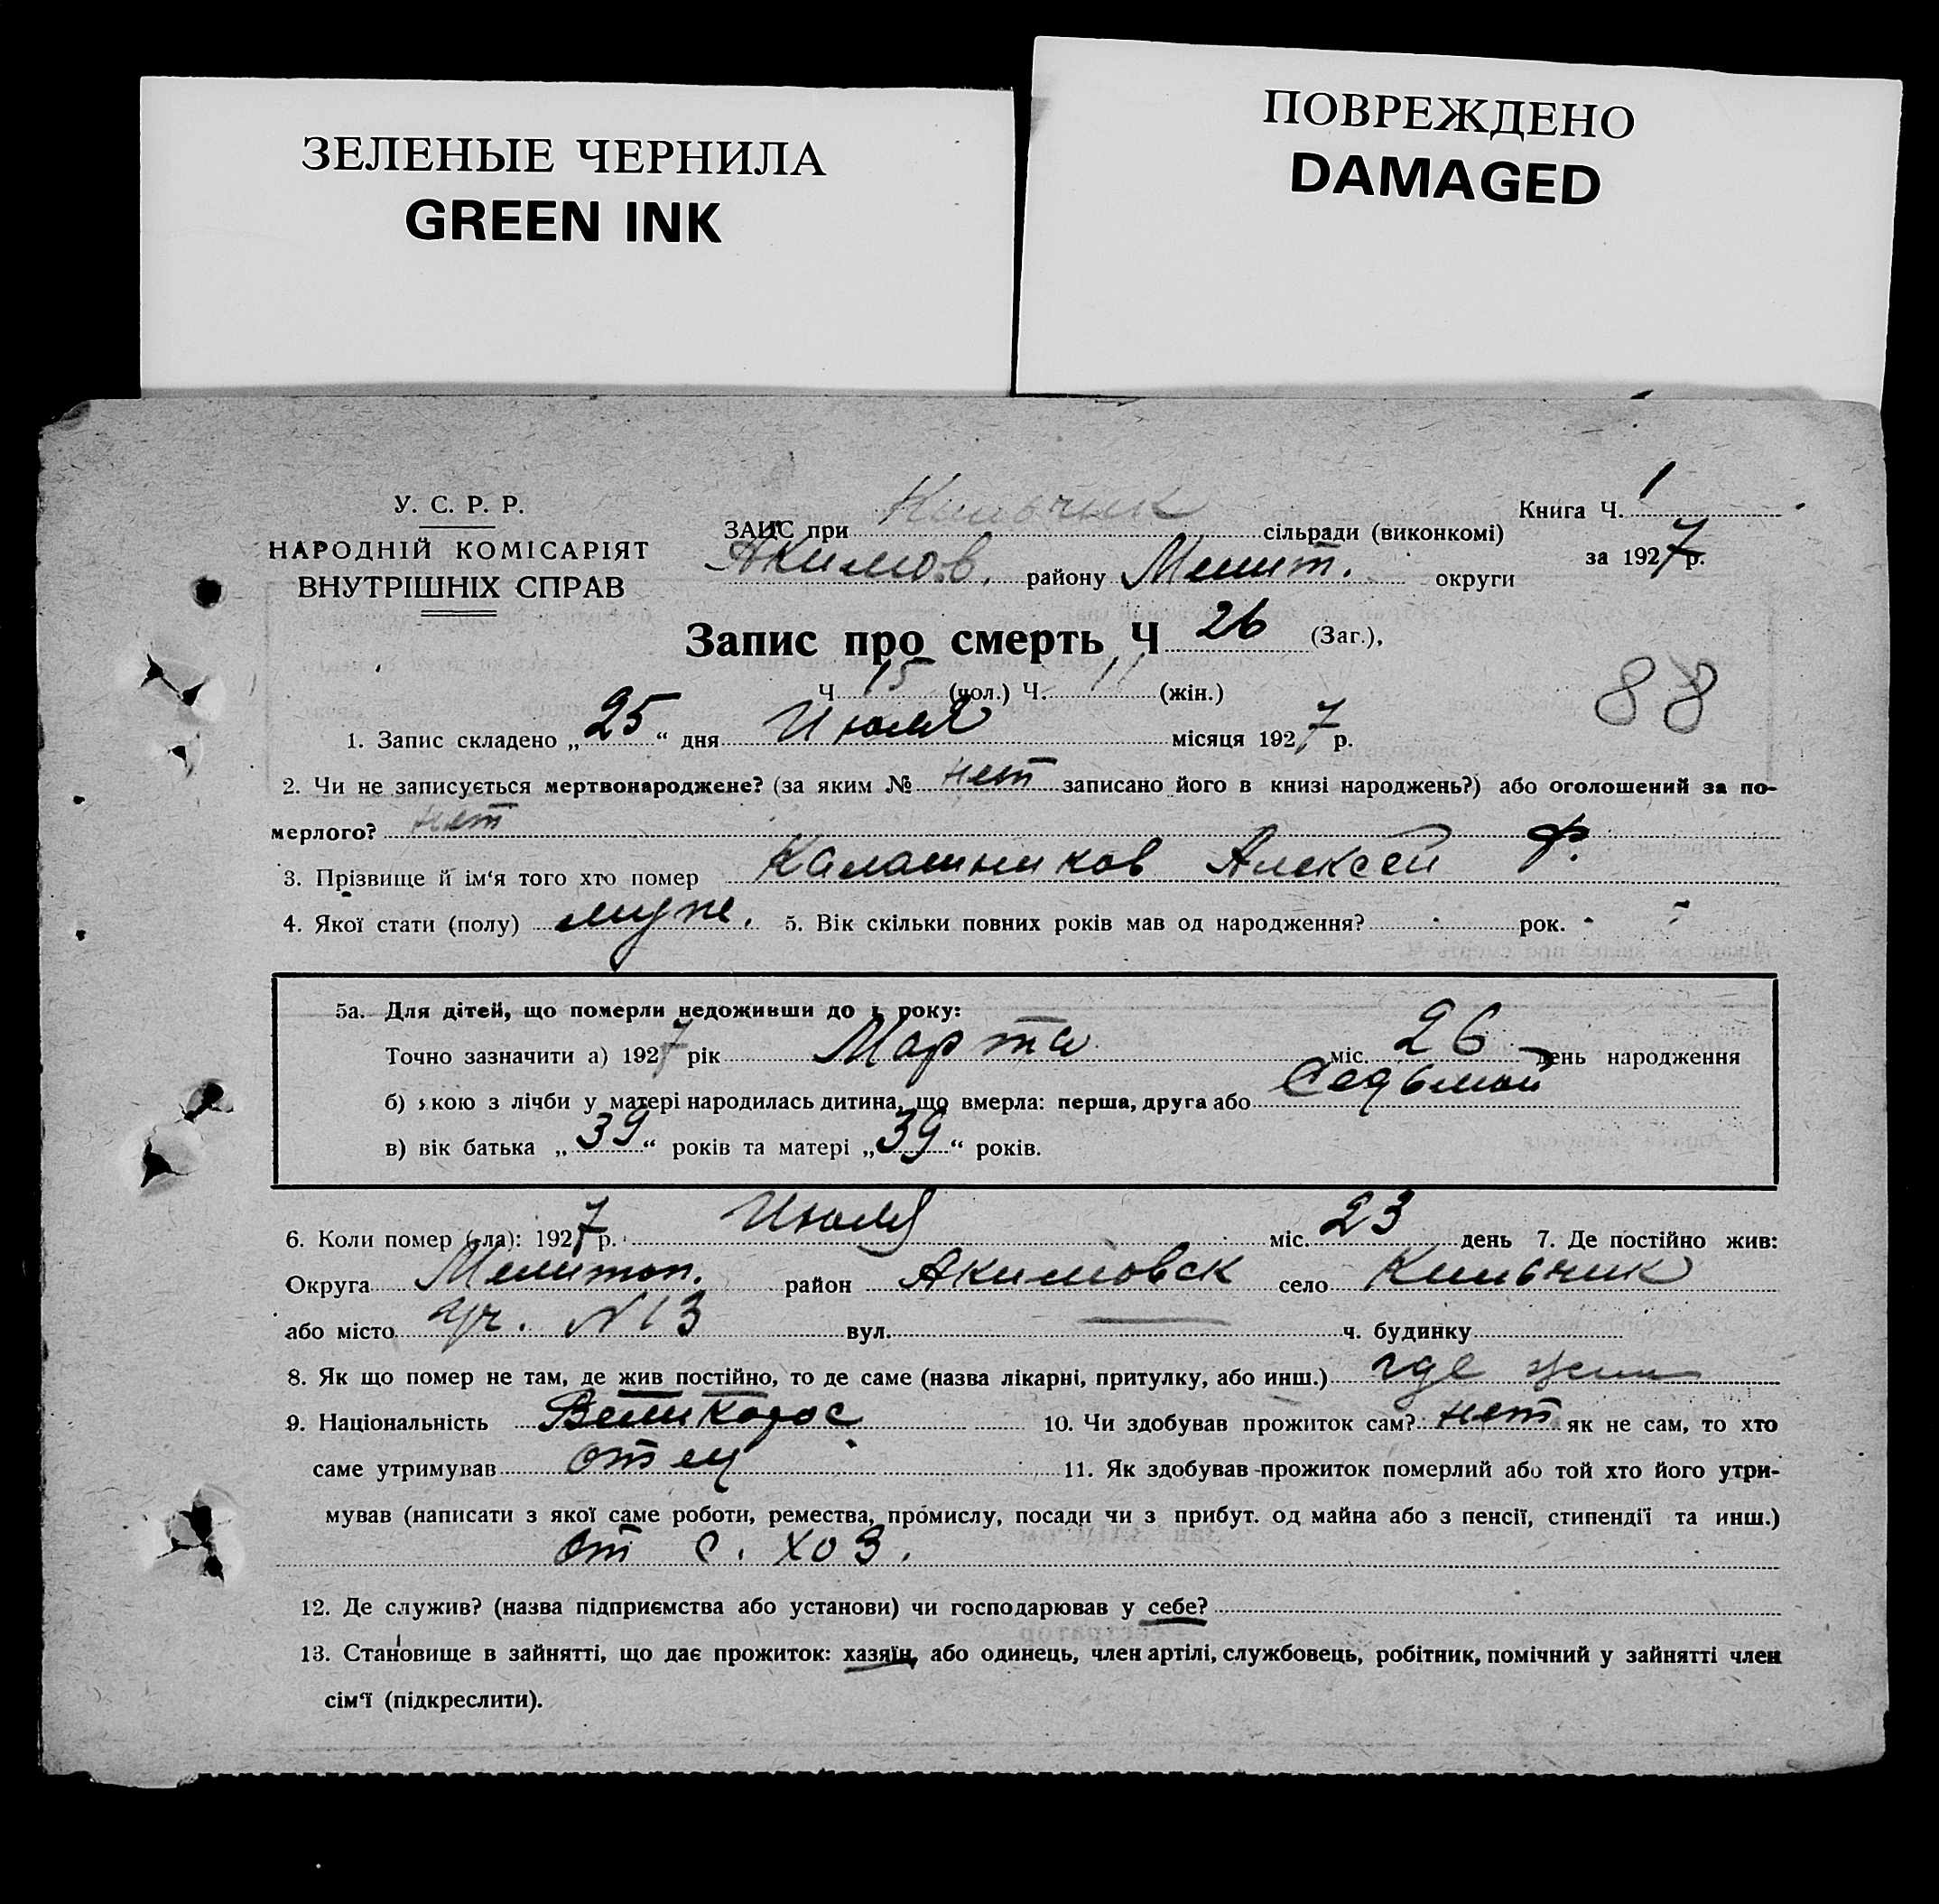 ЗЕЛЕНЫЕ ЧЕРНИЛА
GREEN INK
ПОВРЕЖДЕНО
DAMAGED
У. С. Р. Р.
НАРОДНІЙ КОМІСАРІЯТ
ВНУТРІШНІХ СПРАВ
Книга Ч. 1
за 1927 р.
ЗАГС при Кильчик сільради (виконкомі)
Акимов. району Мелит. округи
Запис про смерть Ч 26 (Заг.),
Ч 15 (чол.) Ч. 11 (жін.)
88
1. Запис складено „25“ дня Июля місяця 1927 р.
2. Чи не записується мертвонароджене? (за яким № нет записано його в книзі народжень?) або оголошений за по-
мерлого? нет
3. Прізвище й ім'я того хто помер Калашников Алексей Ф.
4. Якої стати (полу) муж. 5. Вік скільки повних років мав од народження? рок.
5а. Для дітей, що померли недоживши до 1 року:
Точно зазначити а) 1927 рік Марта міс. 26 день народження
б) якою з лічби у матері народилась дитина, що вмерла: перша, друга або Седьмой
в) вік батька „39“ років та матері „39“ років.
6. Коли помер (-ла): 1927 р. Июля міс. 23 день 7. Де постійно жив:
Округа Мелитоп. район Акимовск село Кильчик
або місто уч. №13 вул. — ч. будинку
8. Як що помер не там, де жив постійно, то де саме (назва лікарні, притулку, або инш.) где жил
9. Національність Великорос 10. Чи здобував прожиток сам? нет як не сам, то хто
саме утримував отец 11. Як здобував прожиток померлий або той хто його утри-
мував (написати з якої саме роботи, ремества, промислу, посади чи з прибут. од майна або з пенсії, стипендії та инш.)
от с. хоз.
12. Де служив? (назва підприємства або установи) чи господарював у себе?
13. Становище в зайнятті, що дає прожиток: хазяїн, або одинець, член артілі, службовець, робітник, помічний у зайнятті член
сім'ї (підкреслити).